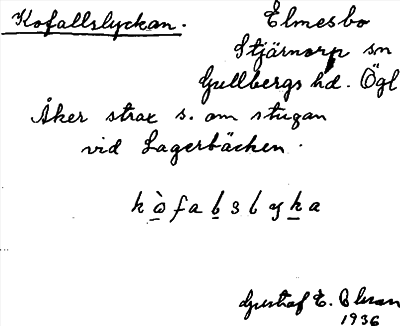 Kofallslyckan. Elmesbo
Stjärnorp sn
Gullbergs hd. Ögl
Åker strax s. om stugan
vid Lagerbäcken.
k ò f a l s l y k a
Gustaf E.
1936